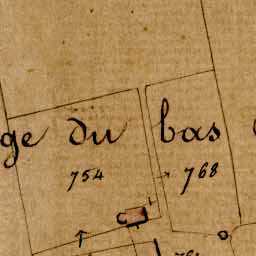 ge du bas
754 768